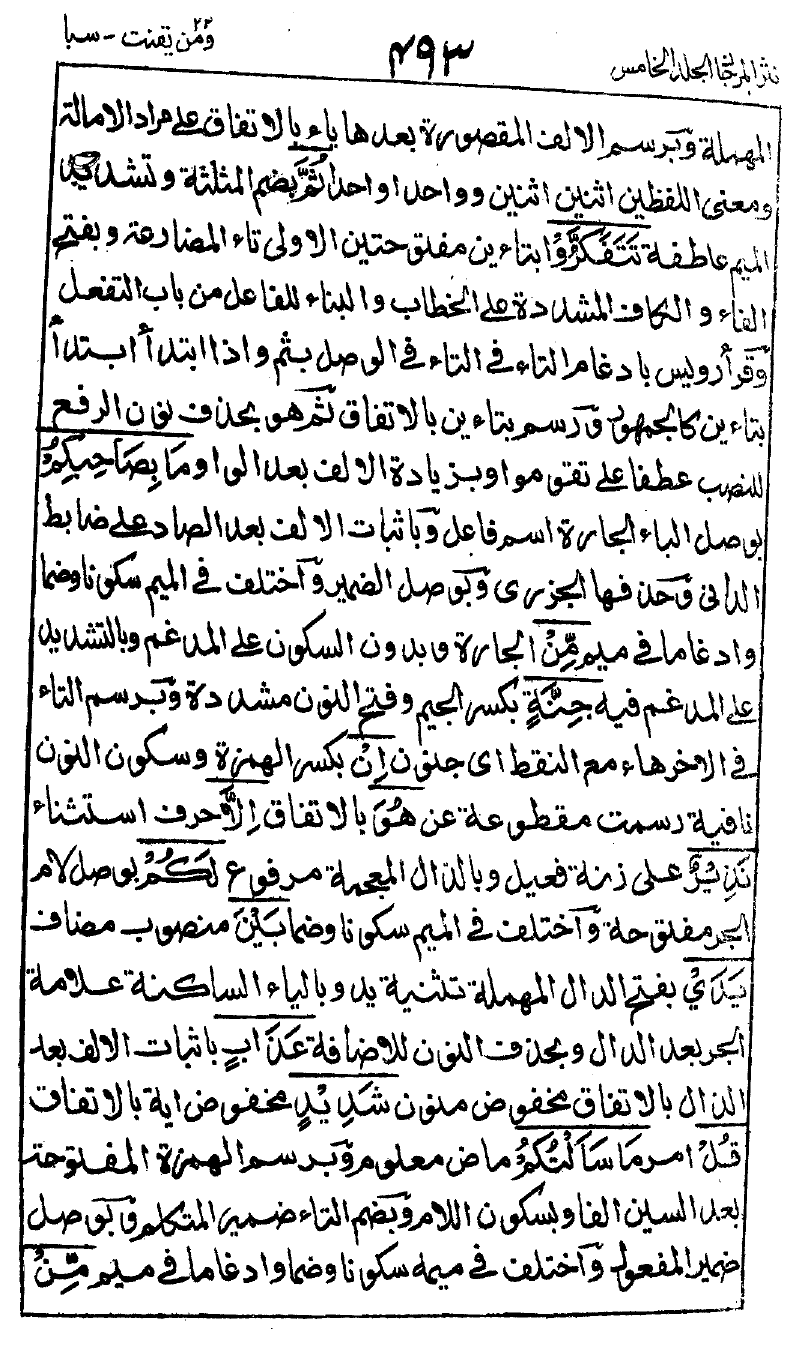 نثر المرجان المجلد الخامس
۴۹۳
ومن يقنت - سبا
۲۲
المهملة وبرسم الالف المقصورة بعدها ياء بالاتفاق على مراد الامالة
ومعنى اللفظين اثنين اثنين وواحدا واحدا ثُمَّ بضم المثلثة وتشديد
الميم عاطفة تَتَفَكَّرُوْا بتاءين مفتوحتين الاولى تاء المضارعة وبفتح
الفاء والكاف المشددة على الخطاب والبناء للفاعل من باب التفعل
وقرأ رويس بادغام التاء في التاء في الوصل بثم واذا ابتدأ ابتدأ
بتاءين كالجمهور ورسم بتاءين بالاتفاق ثم هو بحذف نون الرفع
للنصب عطفا على تقوموا وبزيادة الالف بعد الواو مَا بِصَاحِبِكُمْ
بوصل الباء الجارة اسم فاعل وباثبات الالف بعد الصاد على ضابط
الداني وحذفها الجزري وبوصل الضمير واختلف في الميم سكونا وضما
وادغاما في ميم مِّنْ الجارة وبدون السكون على المدغم وبالتشديد
على المدغم فيه جِنَّةٍ بكسر الجيم وفتح النون مشددة وبرسم التاء
في الاخر هاء مع النقط اى جنون اِنْ بكسر الهمزة وسكون النون
نافية رسمت مقطوعة عن هُوَ بالاتفاق اِلَّا حرف استثناء
نَذِيْرٌ على زنة فعيل وبالذال المعجمة مرفوع لَكُمْ بوصل لام
الجر مفتوحة واختلف في الميم سكونا وضما بَيْنَ منصوب مضاف
يَدَيْ بفتح الدال المهملة تثنية يد وبالياء الساكنة علامة
الجر بعد الدال وبحذف النون للاضافة عَذَابٍ باثبات الالف بعد
الذال بالاتفاق مخفوض منون شَدِيْدٍ مخفوض اية بالاتفاق
قُلْ امر مَا سَاَلْتُكُمْ ماض معلوم وبرسم الهمزة المفتوحة
بعد السين الفا وبسكون اللام وبضم التاء ضمير المتكلم وبوصل
ضمير المفعول واختلف في ميمه سكونا وضما وادغاما في ميم مِّنْ